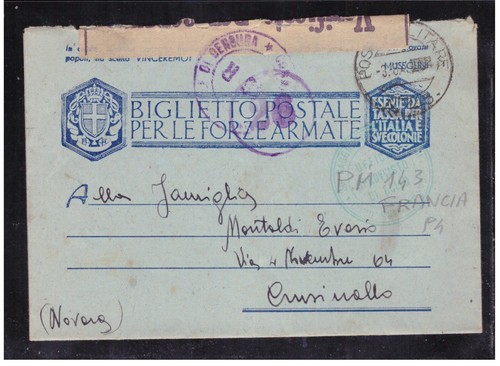 Verifica
popolo italiano VINCEREMO!
MUSSOLINI
DI CENSURA
POSTA MILITARE
BIGLIETTO POSTALE
PER LE FORZE ARMATE
ESENTE DA
TASSA PER
L'ITALIA E
SUE COLONIE
P.M 143
FRANCIA
P4
Alla Famiglia
Montaldi Evasio
Via 4 Novembre 64
Crusinallo
(Novara)